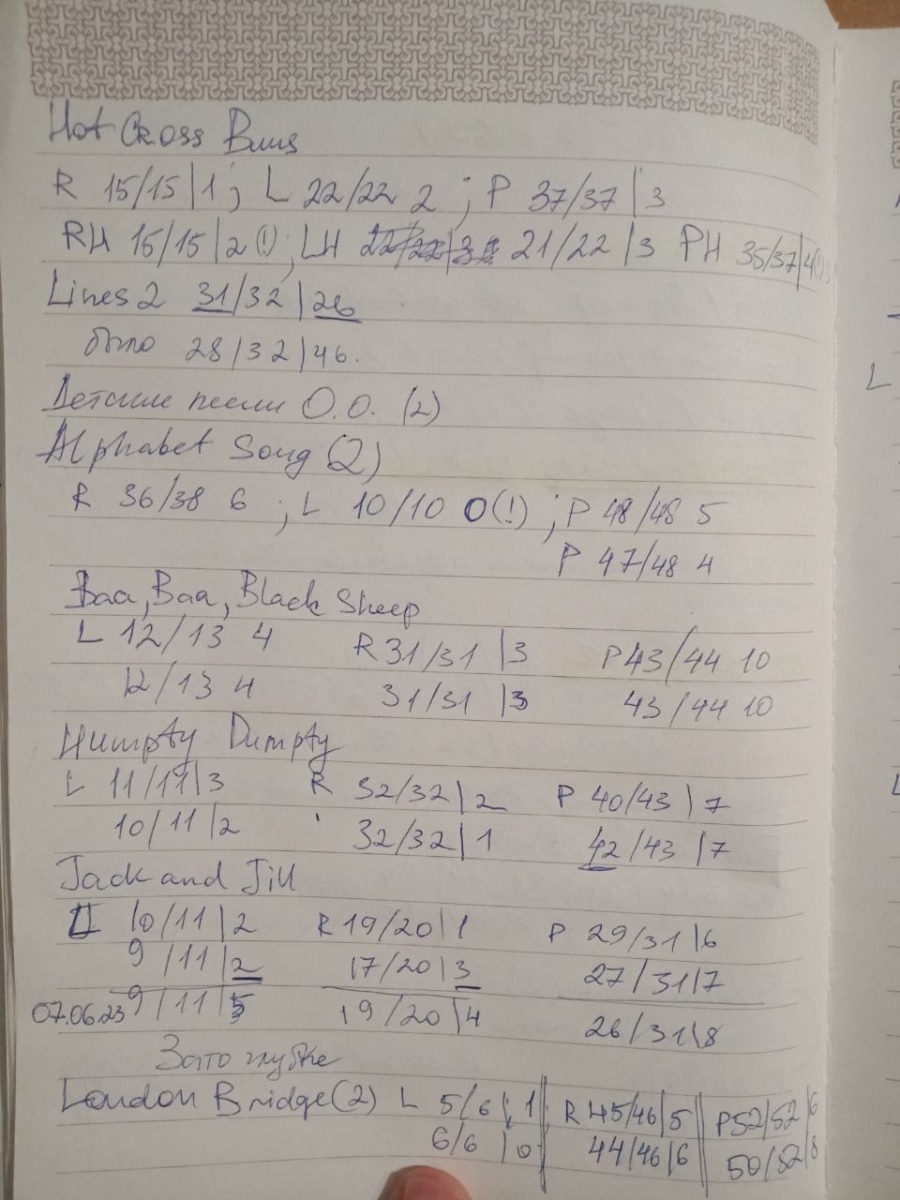 Hot Cross Buns
R 15/15|1; L 22/22 2; P 37/37|3
RH 15/15|2(!); LH 21/22|3 PH 35/37|4(!)
Lines 2 31/32|26
было 28/32|46.
Детские песни O.O. (2)
Alphabet Song (2)
R 36/38 6; L 10/10 0(!); P 48/48 5
P 47/48 4
Baa, Baa, Black Sheep
L 12/13 4 R 31/31|3 P 43/44 10
12/13 4 31/31|3 43/44 10
Humpty Dumpty
L 11/11|3 R 32/32|2 P 40/43|7
10/11|2 32/32|1 42/43|7
Jack and Jill
L 10/11|2 R 19/20|1 P 29/31|6
9/11|2 17/20|3 27/31|7
07.06.23 9/11|5 19/20|4 26/31|8
Зато глубже
London Bridge (2) L 5/6|1 R 45/46|5 P 52/52|6
6/6|0 44/46|6 50/52|8